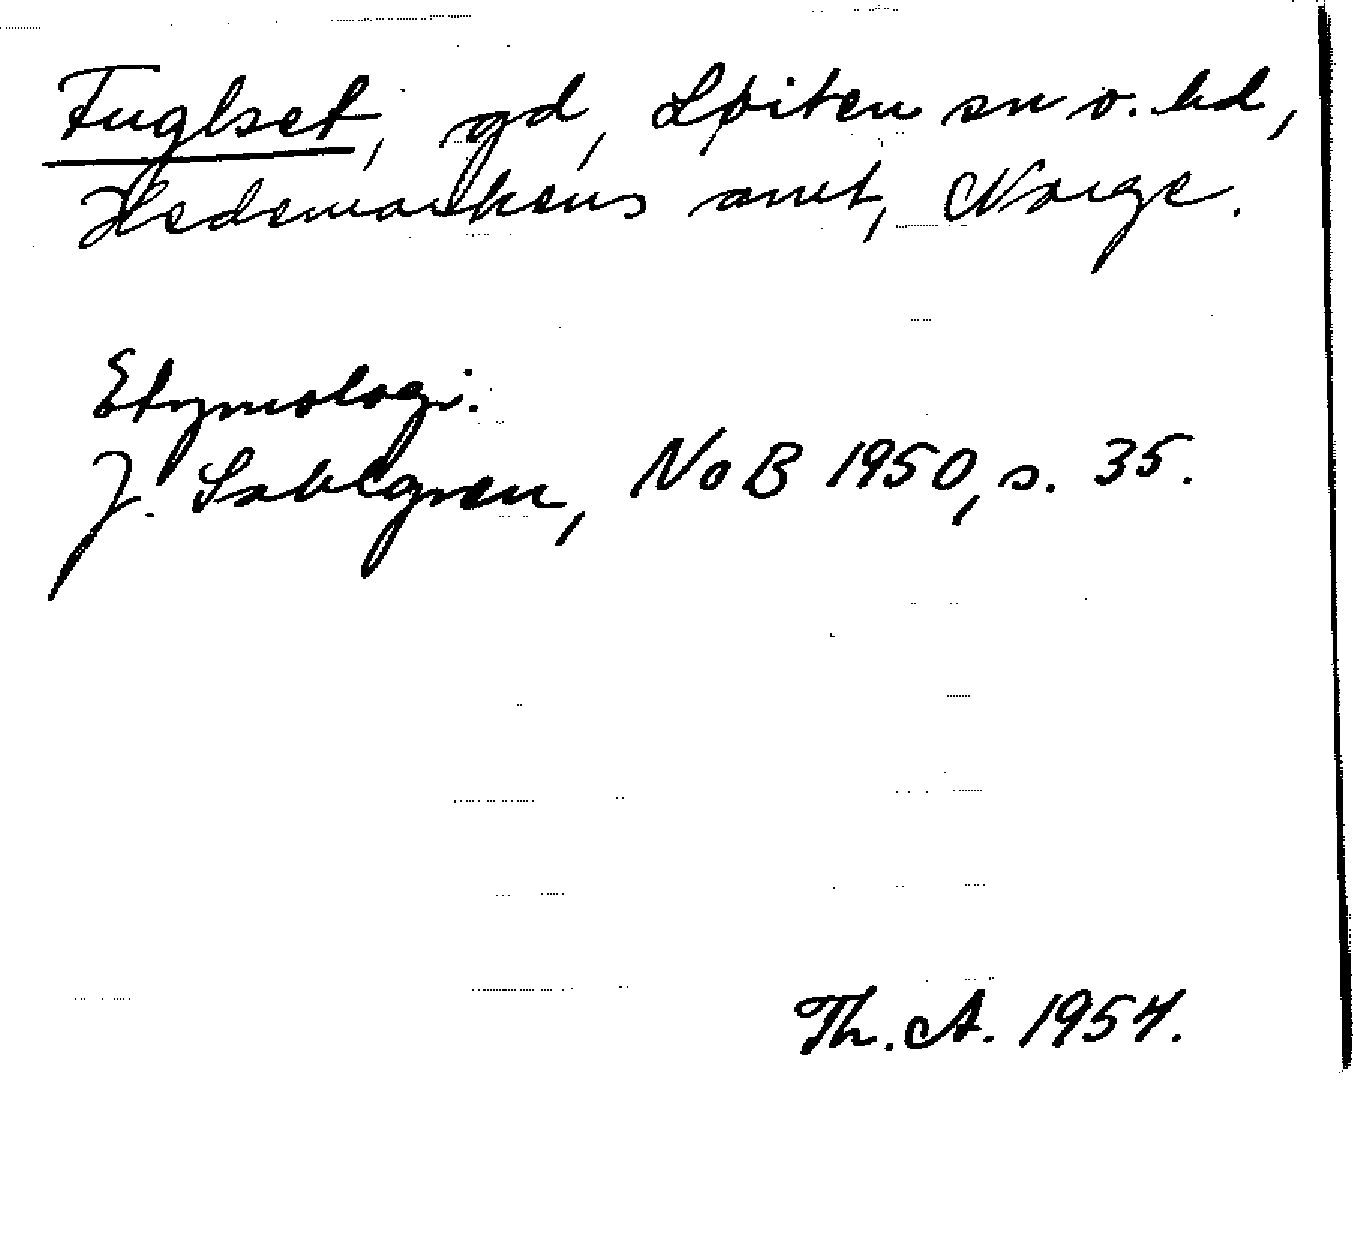 Fuglset, gd, Løiten sn o. hd,
Hedemarkens amt, Norge.
Etymologi.
J. Sahlgren, NoB 1950, s. 35.
Th. A. 1954.